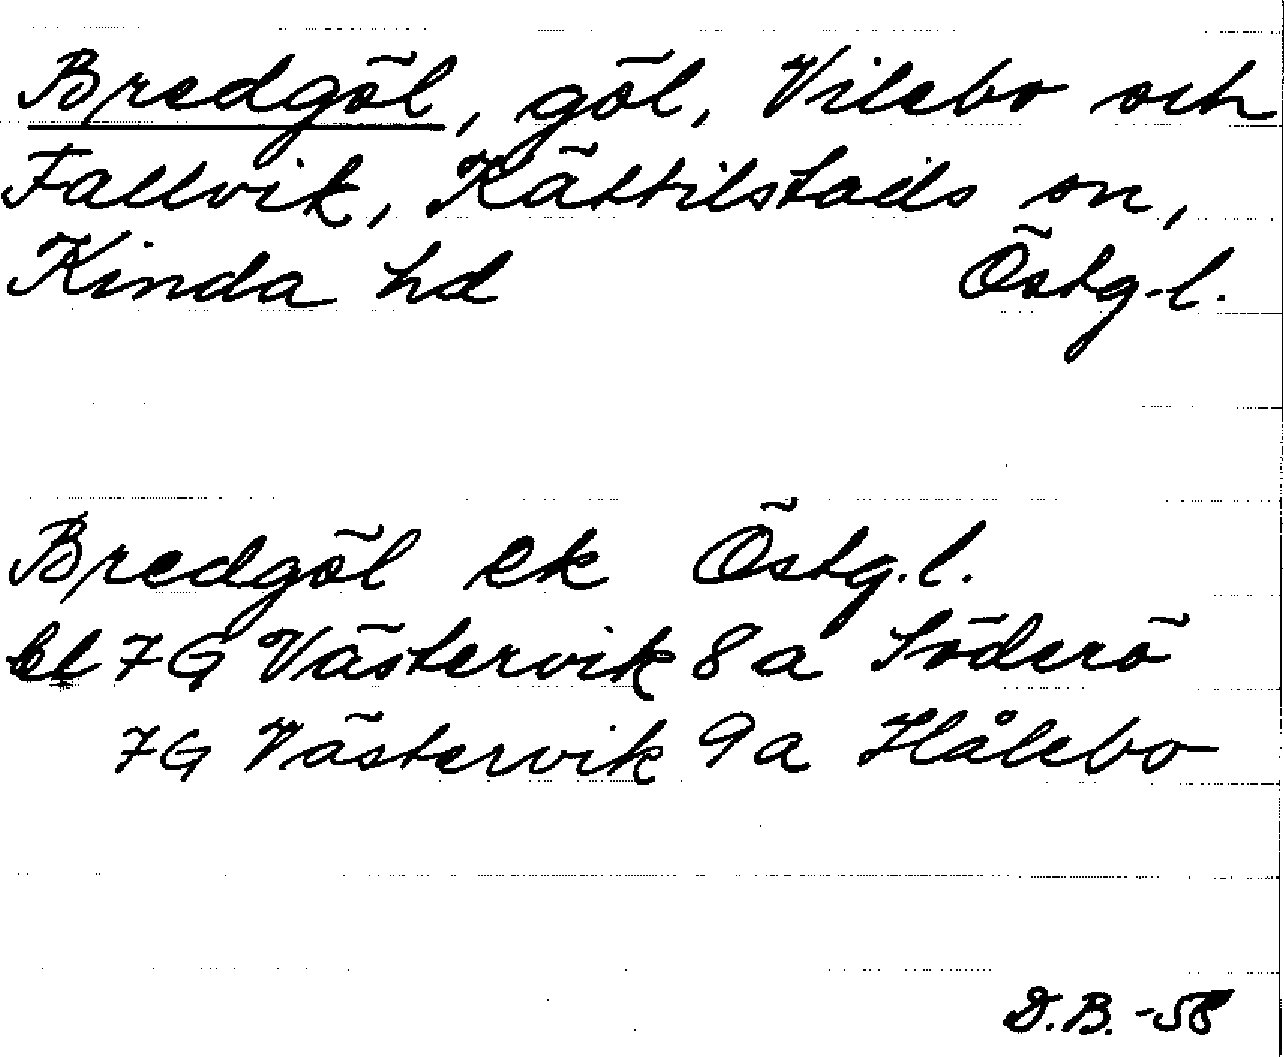 Bredgöl, göl, Vilebo och
Fallvik, Kättilstads sn,
Kinda hd Östg.l.
Bredgöl ek Östg.l.
bl 7G Västervik 8a Söderö
7G Västervik 9a Hålebo
D.B. -58